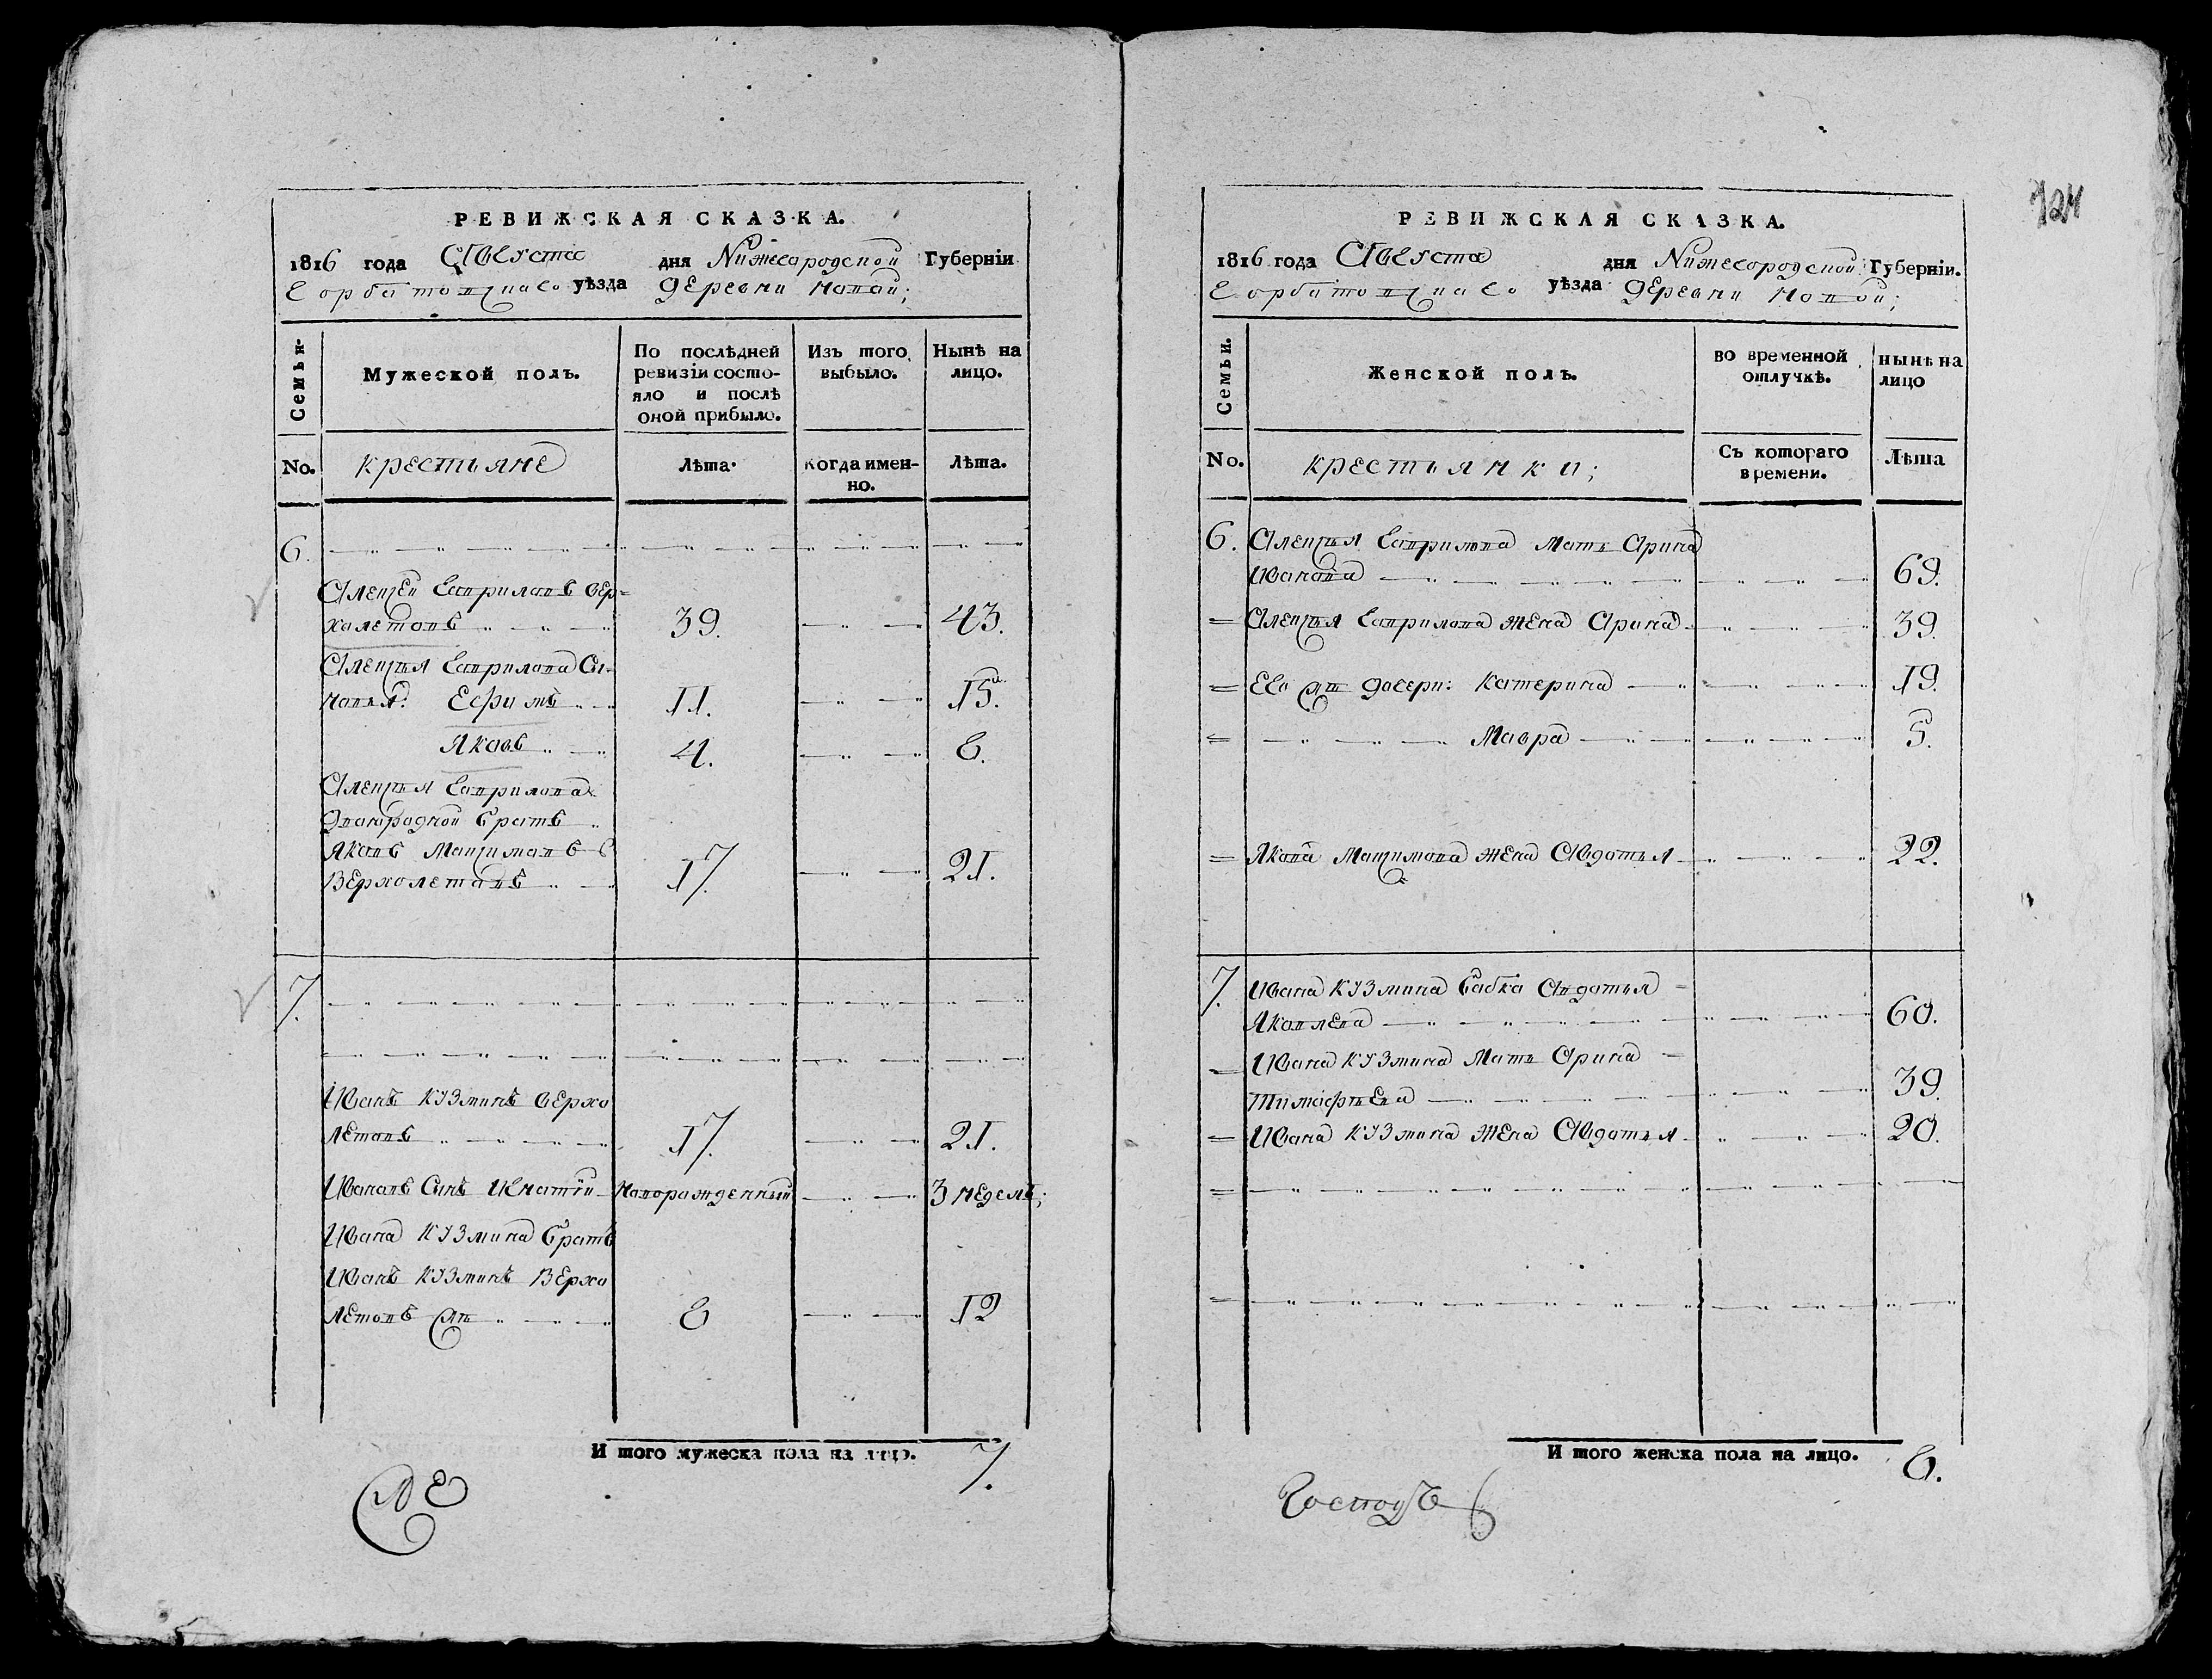 РЕВИЖСКАЯ СКАЗКА.
1816 года Августа дня Нижегородской Губерніи
Горбатовскаго уѣзда деревни Малой;
Семьи.
Мужеской полъ.
По послѣдней ревизіи состо-
яло и послѣ
оной прибыло.
Изъ того
выбыло.
Нынѣ на
лицо.
No.
крестьяне
Лѣта.
Когда имен-
но.
Лѣта.
6.
Алексей Гаврилов вер=
халетов 39. 43.
Алексея Гаврилова Сы-
новья: Ефимъ 11. 15.
Яковъ 4. 8.
Алексея Гаврилова
Двоюродной братъ
Яковъ Максимовъ
Верхолетовъ 17. 21.
7.
Иванъ Кузминъ верхо
летовъ 17. 21.
Ивановъ Сынъ Игнатїй Новорожденный 3 неделъ;
Ивана Кузмина братъ
Иванъ Кузминъ Верхо
летовъ 8 12
И того мужеска пола на лицо. 7.
124
РЕВИЖСКАЯ СКАЗКА.
1816 года Августа дня Нижегородской Губерніи.
Горбатовскаго уѣзда деревни
Семьи.
Женской полъ.
во временной
отлучкѣ.
нынѣ на
лицо
No.
крестьянки;
Съ котораго
времени.
Лѣта
6. Алексея Гаврилова Мать Арина
Иванова 69.
= Алексея Гаврилова жена Арина 39.
= Его же дочери: Катерина 19.
= Мавра 5.
= Якова Максимова жена Авдотья 22.
7. Ивана Кузмина бабка Авдотья
Яковлева 60.
= Ивана Кузмина Мать Арина
Тимофеева 39.
= Ивана Кузмина Жена Авдотья 20.
=
=
И того женска пола на лицо. 6.